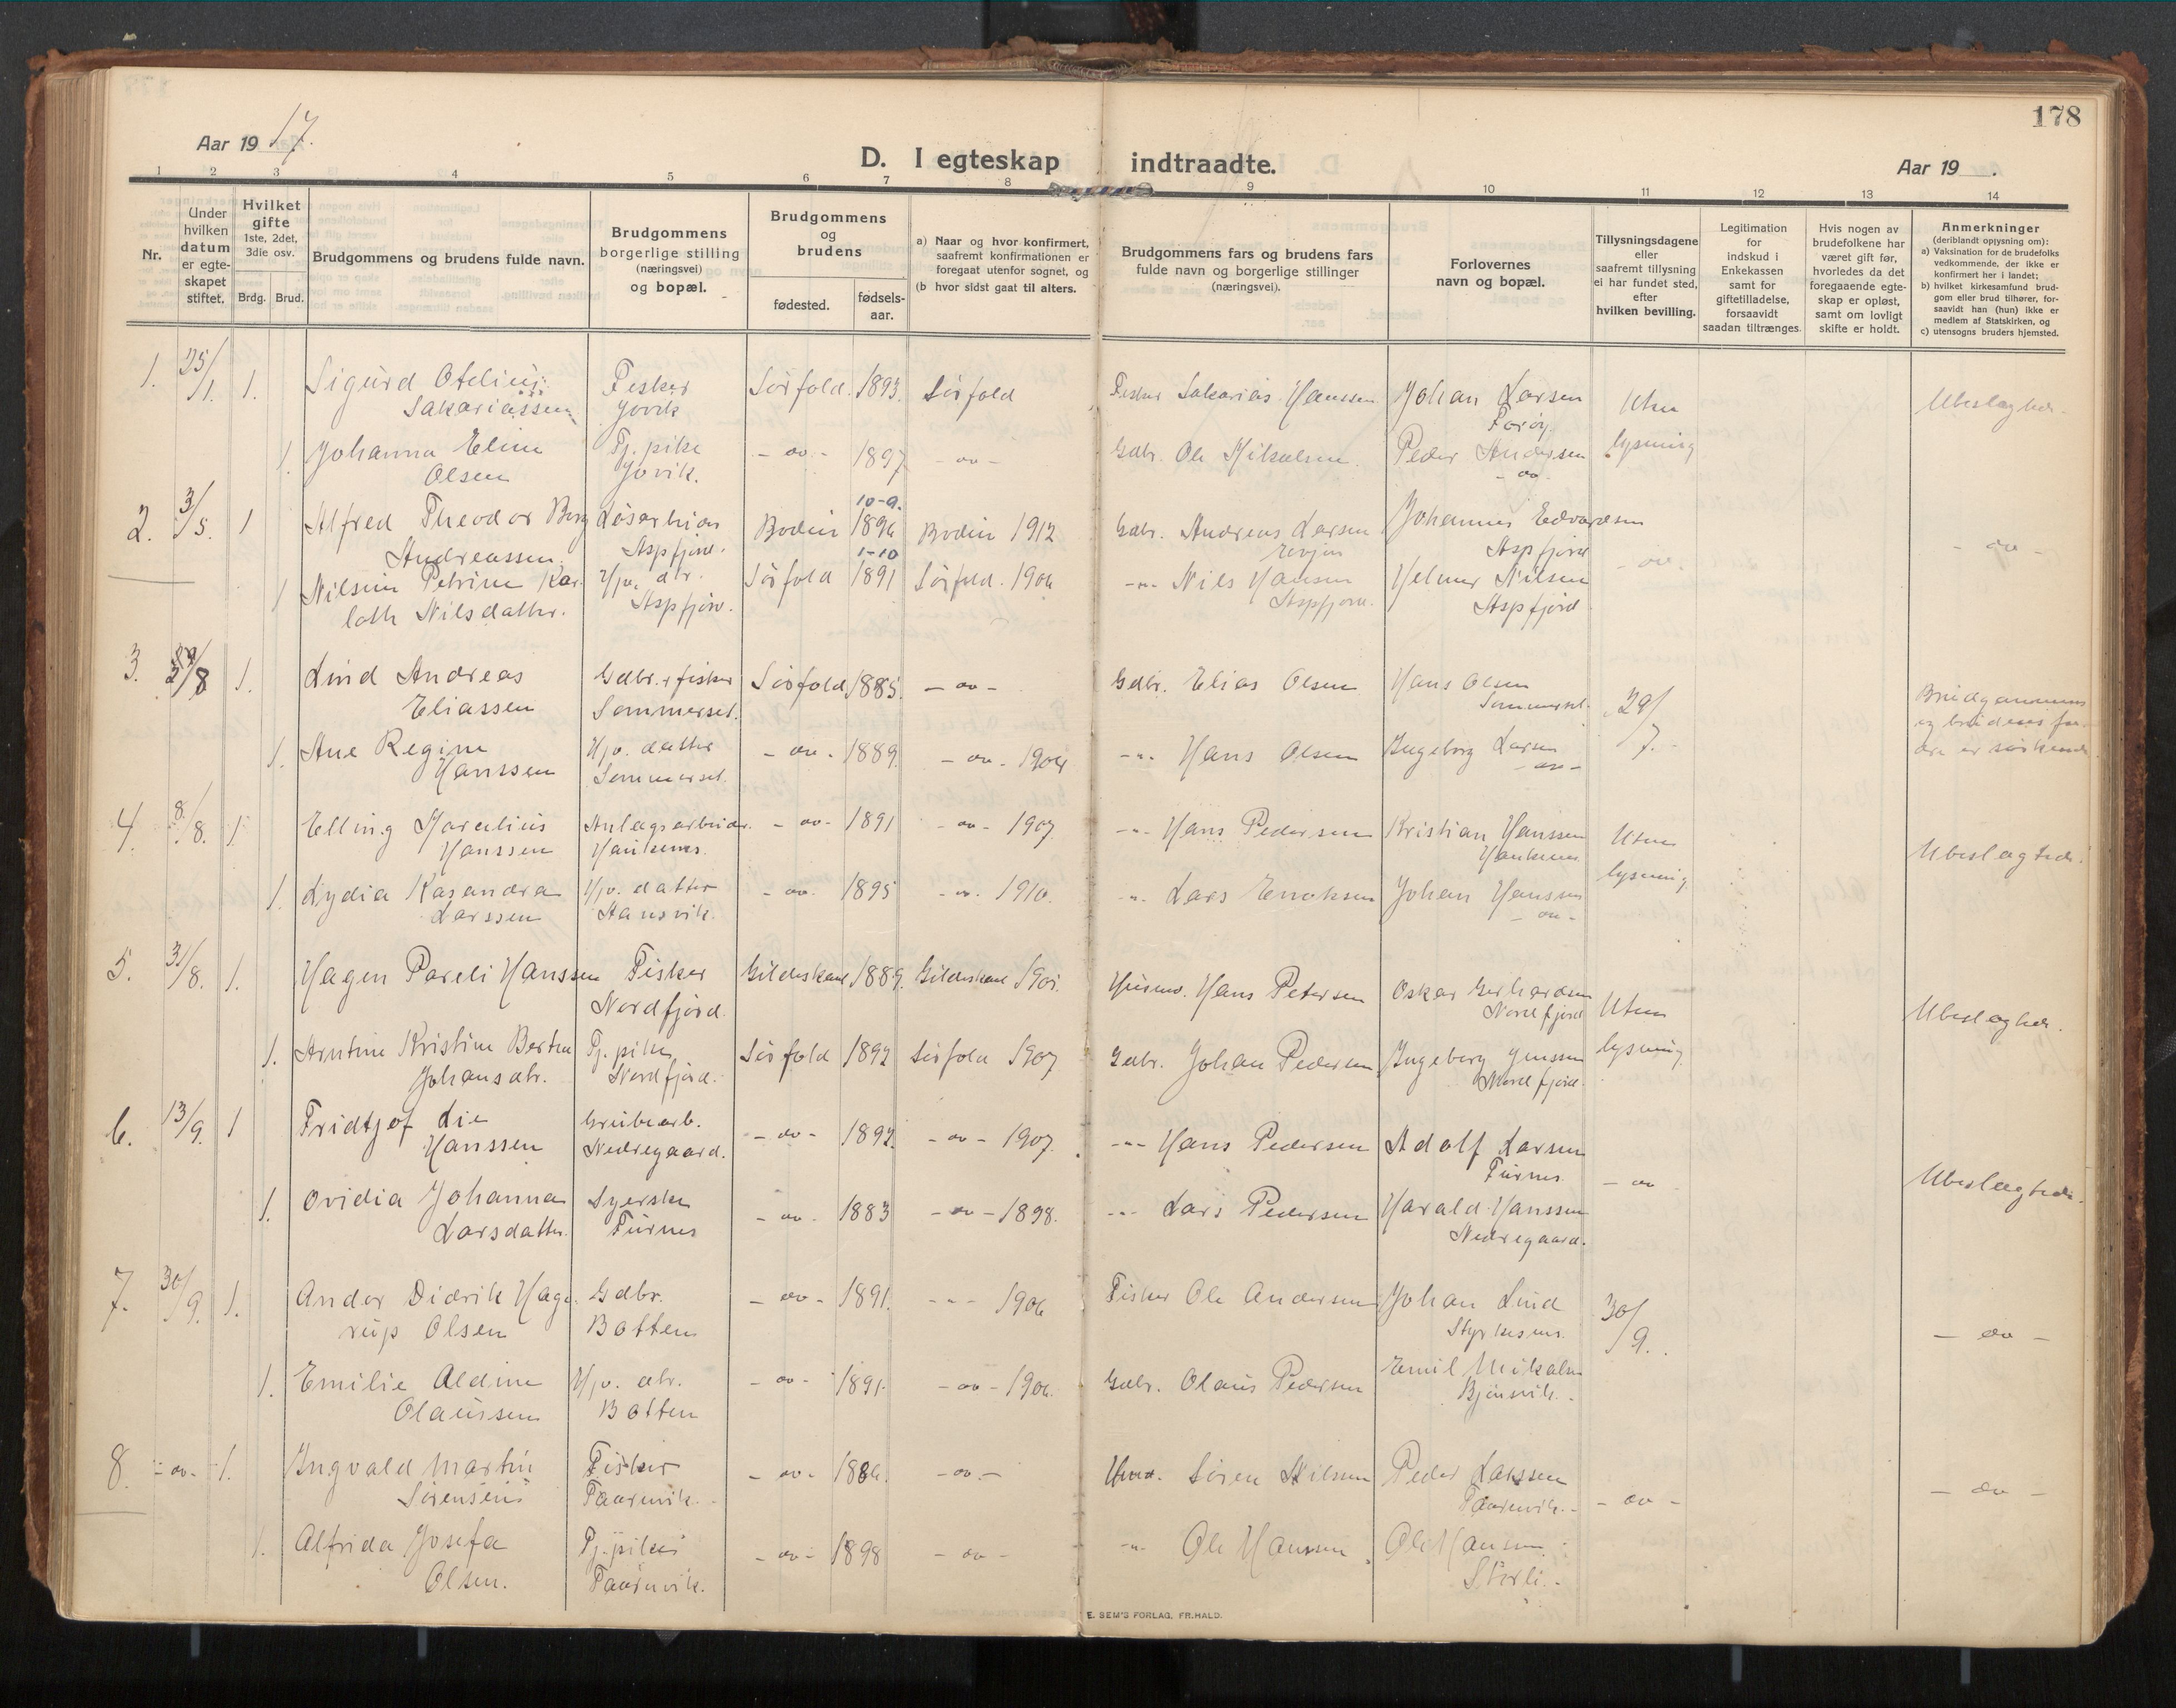 178
Aar 19 17.
D. I egteskap indtraadte.
Aar 19 .
1 2 3 4 5 6 7 8 9 10 11 12 13 14
Nr.
Under hvilken datum er egte-skapet stiftet.
Hvilket gifte 1ste, 2det, 3die osv.
Brdg. Brud.
Brudgommens og brudens fulde navn.
Brudgommens borgerlige stilling (næringsvei) og bopæl.
Brudgommens og brudens
fødested.
fødsels-aar.
a) Naar og hvor konfirmert, saafremt konfirmationen er foregaat utenfor sognet, og
(b hvor sidst gaat til alters.
Brudgommens fars og brudens fars fulde navn og borgerlige stillinger (næringsvei).
Forlovernes navn og bopæl.
Tillysningsdagene eller saafremt tillysning ei har fundet sted, efter hvilken bevilling.
Legitimation for indskud i Enkekassen samt for giftetilladelse, forsaavidt saadan tiltrænges.
Hvis nogen av brudefolkene har været gift før, hvorledes da det foregaaende egte-skap er opløst, samt om lovligt skifte er holdt.
Anmerkninger (deriblandt opjysning om):
a) Vaksination for de brudefolks vedkommende, der ikke er konfirmert her i landet;
b) hvilket kirkesamfund brud-gom eller brud tilhører, for-saavidt han (hun) ikke er medlem af Statskirken, og
c) utensogns bruders hjemsted.
1. 25/1. 1. Sigurd Otelius Fisker Sørfold. 1893. Sørfold Fisker Sakarias Hanssen Johan Larsen Uten Ubeslægtede.
Sakariassen Jovik Farøy
1. Johanna Eline Tj. pike - " - 1897 - " - Gdbr. Ole Mikalsen Peder Andersen lysning
Olsen Jovik. - " -
10-9.
2. 3/5. 1 Alfred Theodor Berg Løsarbeider Bodin 1896 Bodin 1912 Gdbr. Andreas Larsen Johannes Edvardsen
Andreassen. Aspfjord. Evjen Aspfjord - " - - " -
1-10
1 Nilsine Petrine Kar- Hjv. dtr. Sørfold 1891 Sørfold. 1906 - " - Nils Hansen Helmer Nilsen
loth Nilsdatter. Aspfjord. Aspfjord. Aspfjord
3. /8 1. Lind Andreas Gdbr. & fisker Sørfold 1885. - " - Gdbr. Elias Olsen Hans Olsen
Eliassen Sommerset. Sommerset. 29/7. Brudgommens
1. Ane Regine Hjv. datter - " - 1889. - " - 1904 - " - Hans Olsen Ingeborg Larsen og brudens for-
Hanssen Sommerset. - " - ældre er søskende
4. 8/8. 1. Elling Marelius Anlægsarbeider. - " - 1891 - " - 1907. - " - Hans Pedersen Kristian Hanssen Uten Ubeslægtede.
Hanssen
1. Lydia Kasandra Hjv. datter - " - 1895 - " - 1910. - " - Lars Enoksen Johan Hanssen lysning.
Larssen Hansvik. - " -
5. 31/8. 1. Hagen Pareli Hanssen Fisker Gildeskaal 1889. Gildeskaal 1905. Husmd. Hans Petersen Oskar Gerhardsen Uten Ubeslægtede.
Nordfjord. Nordfjord
1. Arntine Kristine Bertea Tj. pike Sørfold 1892 Sørfold 1907 Gdbr. Johan Pedersen Ingeborg Jenssen lysning.
Johansdtr. Nordfjord. Nordfjord.
6. 13/9. 1 Fridtjof Lie Grubearb. - " - 1892. - " - 1907. - " - Hans Pedersen Adolf Larsen Ubeslægtede.
Hanssen Nedregaard. Furnes. - " -
1. Ovidia Johanna Syerske - " - 1883 - " - 1898. - " - Lars Pedersen Harald Hanssen
Larsdatter. Furnes Nedregaard.
7. 30/9. 1. Andor Didrik Hage- Gdbr. - " - 1891. - " - 1906 Fisker Ole Andersen Johan Lind 30/9. - " -
rup Olsen Botten Styrkesnes.
1. Emilie Aldine Hjv. dtr. - " - 1891. - " - 1906. Gdbr. Olaus Pedersen Emil Mikalsen
Olaussen Botten Bjønsvik.
8. - " - 1. Ingvald Martin Fisker - " - 1886. - " - Søren Nilsen Peder Larssen
Sørensen Faarevik. Faarevik. - " - - " -
1. Alfrida Josefa Tj. pike - " - 1898 - " - - " - Ole Hanssen Ole Hanssen
Olsen. Faarevik. Storli.
E. SEM'S FORLAG, FR.HALD.